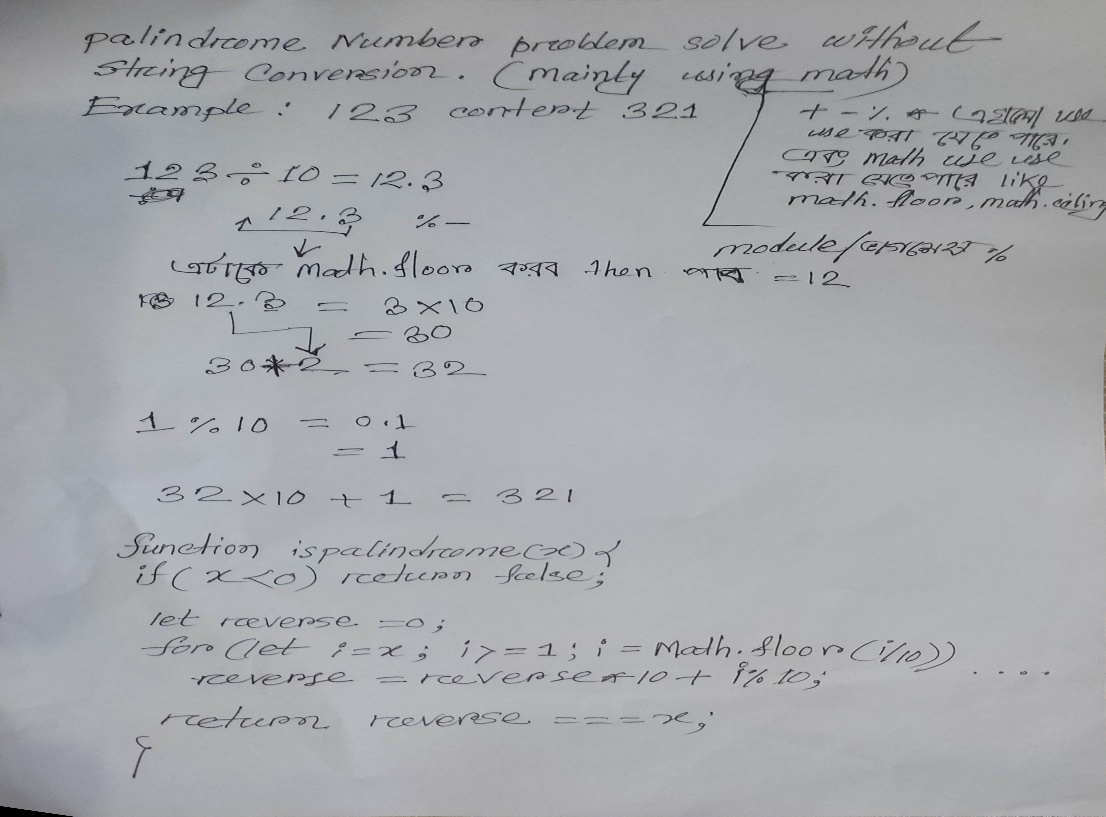 palindrome Number problem solve without
String Conversion. (mainly using math)
Example : 123 content 321
+ - % * এগুলো use
use করা যেতে পারে।
এবং math use use
করা যেতে পারে like
math.floor, math.ceiling
module/ভাগশেষ %
123 ÷ 10 = 12.3
12.3 % -
এটাকে math.floor করব then পাব = 12
12.3 = 3×10
= 30
30*2 = 32
1 % 10 = 0.1
= 1
32×10 + 1 = 321
function ispalindrome(x){
if(x<0) return false;
let reverse =0;
for(let i=x; i>=1; i = Math.floor(i/10))
reverse = reverse*10+ i%10; ....
return reverse ===x;
}